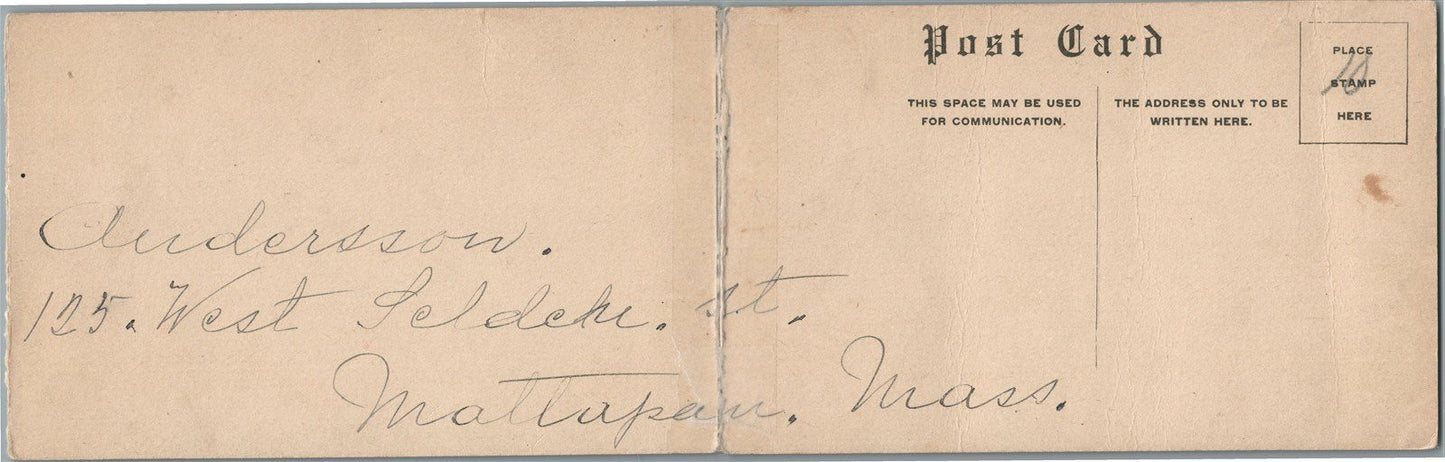 Post Card
THIS SPACE MAY BE USED
FOR COMMUNICATION.
THE ADDRESS ONLY TO BE
WRITTEN HERE.
PLACE
STAMP
HERE
10
Andersson.
125. West Seldehe. st.
Mattapan. Mass.